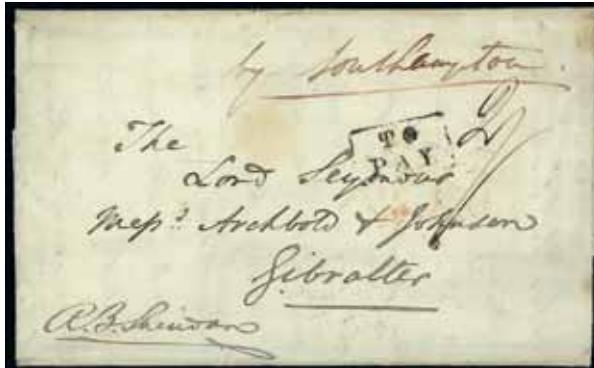 by Southampton.
TO
PAY
2/
The
Lord Seymour
Mess.rs Archbold & Johnson
Gibralter
R. B. Sheridan